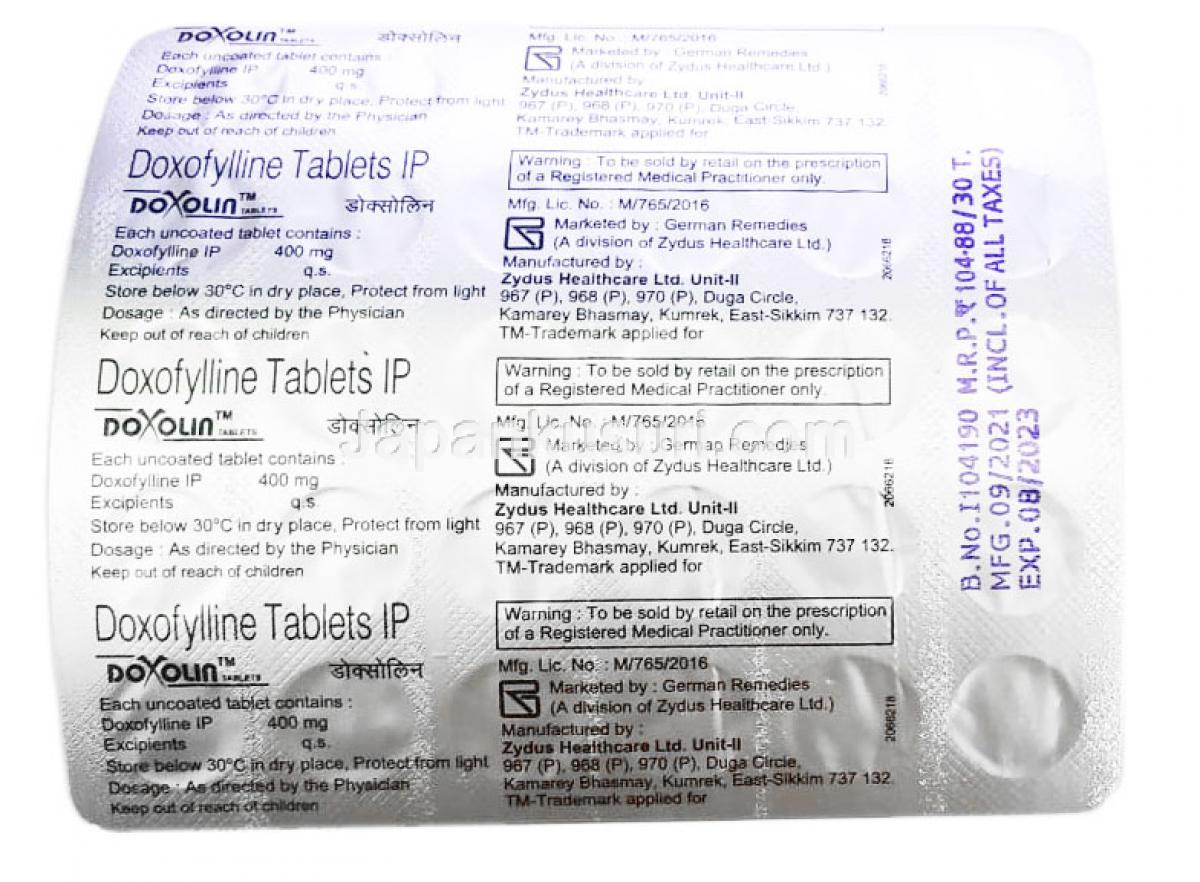 DOXOLIN™ TABLETS डोक्सोलिन
Each uncoated tablet contains :
Doxofylline IP 400 mg
Excipients q.s.
Store below 30°C in dry place, Protect from light
Dosage : As directed by the Physician
Keep out of reach of children
Mfg. Lic. No. : M/765/2016
Marketed by : German Remedies
(A division of Zydus Healthcare Ltd.)
Manufactured by :
Zydus Healthcare Ltd. Unit-II
967 (P), 968 (P), 970 (P), Duga Circle,
Kamarey Bhasmay, Kumrek, East-Sikkim 737 132.
TM-Trademark applied for
2066218
Doxofylline Tablets IP
DOXOLIN™ TABLETS डोक्सोलिन
Each uncoated tablet contains :
Doxofylline IP 400 mg
Excipients q.s.
Store below 30°C in dry place, Protect from light
Dosage : As directed by the Physician
Keep out of reach of children
Warning : To be sold by retail on the prescription
of a Registered Medical Practitioner only.
Mfg. Lic. No. : M/765/2016
Marketed by : German Remedies
(A division of Zydus Healthcare Ltd.)
Manufactured by :
Zydus Healthcare Ltd. Unit-II
967 (P), 968 (P), 970 (P), Duga Circle,
Kamarey Bhasmay, Kumrek, East-Sikkim 737 132.
TM-Trademark applied for
2066218
Doxofylline Tablets IP
DOXOLIN™ TABLETS डोक्सोलिन
Each uncoated tablet contains :
Doxofylline IP 400 mg
Excipients q.s.
Store below 30°C in dry place, Protect from light
Dosage : As directed by the Physician
Keep out of reach of children
Warning : To be sold by retail on the prescription
of a Registered Medical Practitioner only.
Mfg. Lic. No. : M/765/2016
Marketed by : German Remedies
(A division of Zydus Healthcare Ltd.)
Manufactured by :
Zydus Healthcare Ltd. Unit-II
967 (P), 968 (P), 970 (P), Duga Circle,
Kamarey Bhasmay, Kumrek, East-Sikkim 737 132.
TM-Trademark applied for
2066218
Doxofylline Tablets IP
DOXOLIN™ TABLETS डोक्सोलिन
Each uncoated tablet contains :
Doxofylline IP 400 mg
Excipients q.s.
Store below 30°C in dry place, Protect from light
Dosage : As directed by the Physician
Keep out of reach of children
Warning : To be sold by retail on the prescription
of a Registered Medical Practitioner only.
Mfg. Lic. No. : M/765/2016
Marketed by : German Remedies
(A division of Zydus Healthcare Ltd.)
Manufactured by :
Zydus Healthcare Ltd. Unit-II
967 (P), 968 (P), 970 (P), Duga Circle,
Kamarey Bhasmay, Kumrek, East-Sikkim 737 132.
TM-Trademark applied for
2066218
B.No.I104190 M.R.P.₹104.88/30 T.
MFG.09/2021 (INCL.OF ALL TAXES)
EXP.08/2023